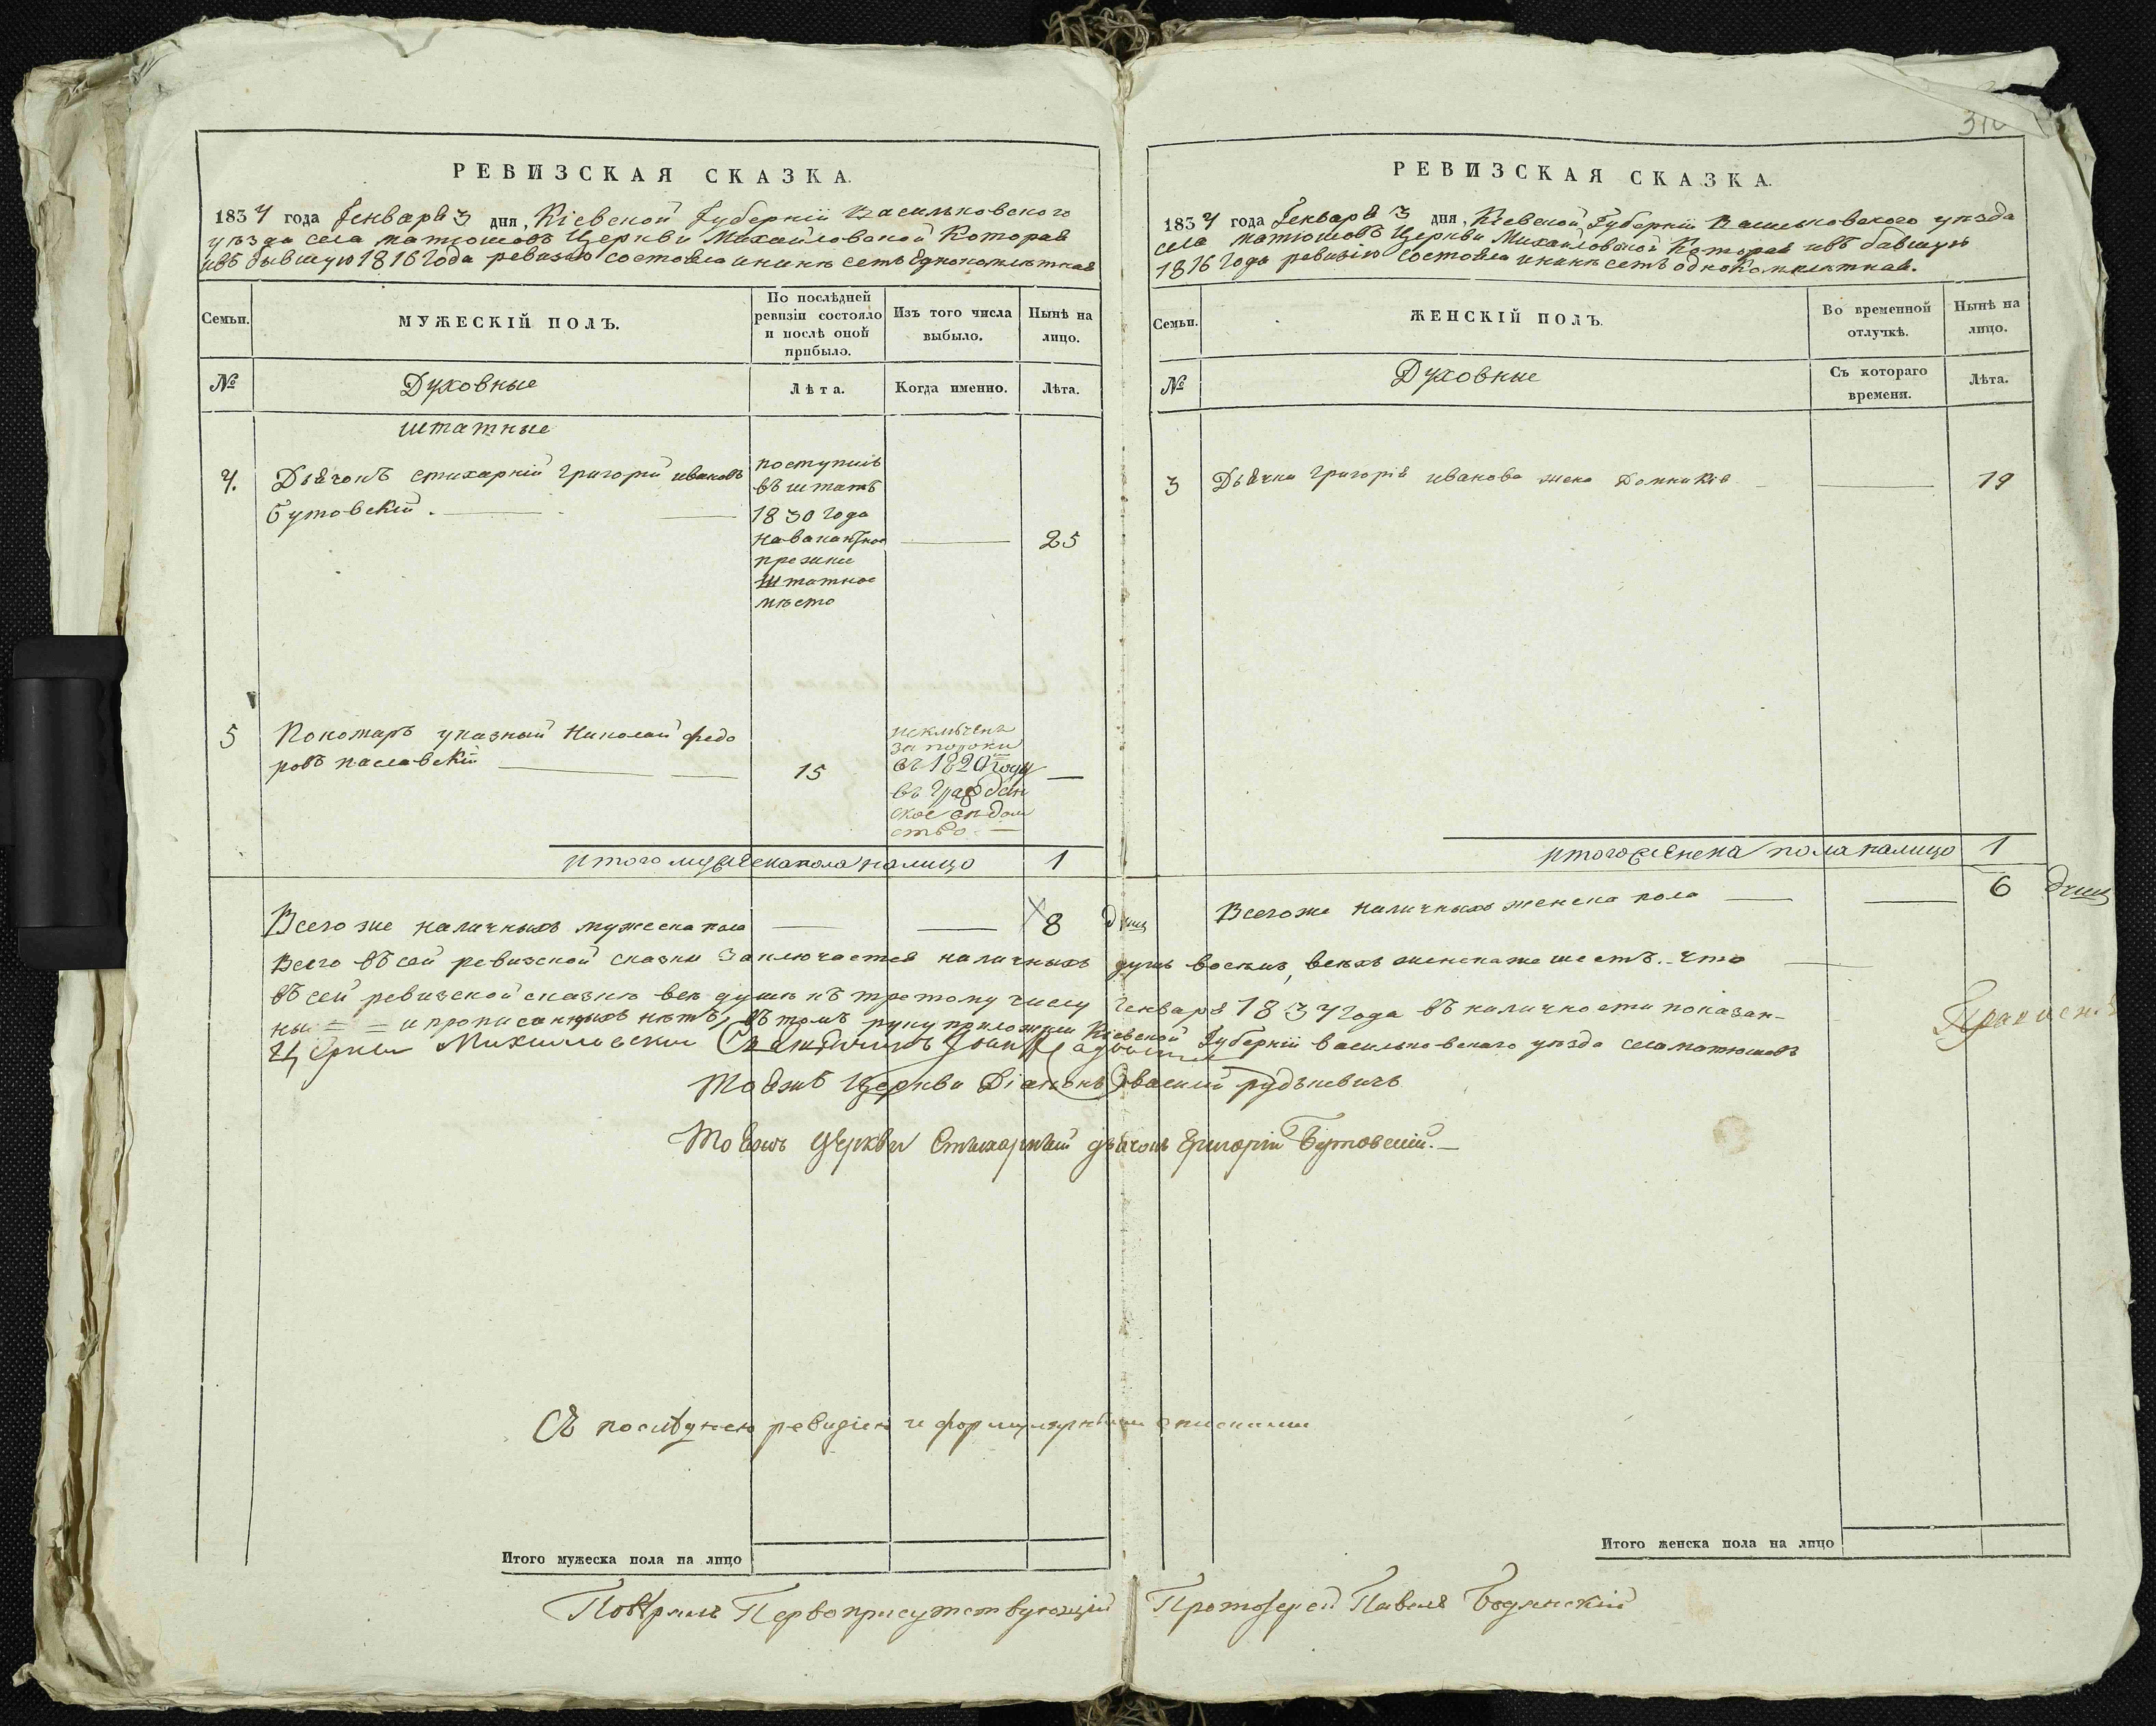 310
РЕВИЗСКАЯ СКАЗКА.
1834 года Генваря 3 дня, Кіевской Губерніи Васильковского
уѣзда села матюшовъ Церкви Михайловской Которая
ивъ бывшую 1816 года ревизію состояла инынѣ есть однокомплѣтная
Семьи.
МУЖЕСКІЙ ПОЛЪ.
По послѣдней
ревизіи состояло
и послѣ оной
прибыло.
Изъ того числа
выбыло.
Нынѣ на
лицо.
№
Духовные
Лѣта.
Когда именно.
Лѣта.
штатные
4. Дьячокъ стихарній григорій ивановъ
бутовскій.
поступилъ
въ штатъ
1830 года
на вакантное
прежнее
штатное
мѣсто
25
5 Пономарь указный николай федо
ровъ паславскій
15
исключенъ
за пороки
въ 1829 году
въ граждан
ское вѣдом
ство
итого мужеска пола налицо 1
Всего же наличныхъ мужеска пола 8 душ
РЕВИЗСКАЯ СКАЗКА.
1834 года Генваря 3 дня, Кіевской Губерніи Васильковского уѣзда
села матюшовъ Церкви Михайловской Которая ивъ бывшую
1816 года ревизію состояла инынѣ есть однокомплѣтная.
Семьи.
ЖЕНСКІЙ ПОЛЪ.
Во временной
отлучкѣ.
Нынѣ на
лицо.
№
Духовные
Съ котораго
времени.
Лѣта.
3 Дьячка григорія иванова жена Домникія 19
итого женска пола налицо 1
Всего же наличныхъ женска пола 6 душ
Всего въ сей ревизской сказки заключается наличныхъ душъ восемь, всѣхъ женска же шесть. что
въ сей ревизской сказкѣ всѣ души къ третому числу генваря 1834 года въ наличности показан-
ны и прописанныхъ нѣтъ, въ томъ руку приложили Кіевской Губерніи васильковскаго уѣзда села матюшовъ
Церкви Михайловской Священникъ Іоаннъ
Тояжъ Церкви Діаконъ василій рудкевичъ
Тояжъ Церкви Стихарный дьячокъ Григорій Бутовскій.
Съ послѣднею ревизіею и формулярными списками
Итого мужеска пола на лицо
Итого женска пола на лицо
Повѣрялъ Первоприсутствующій Протоіерей Павелъ Бодянскій